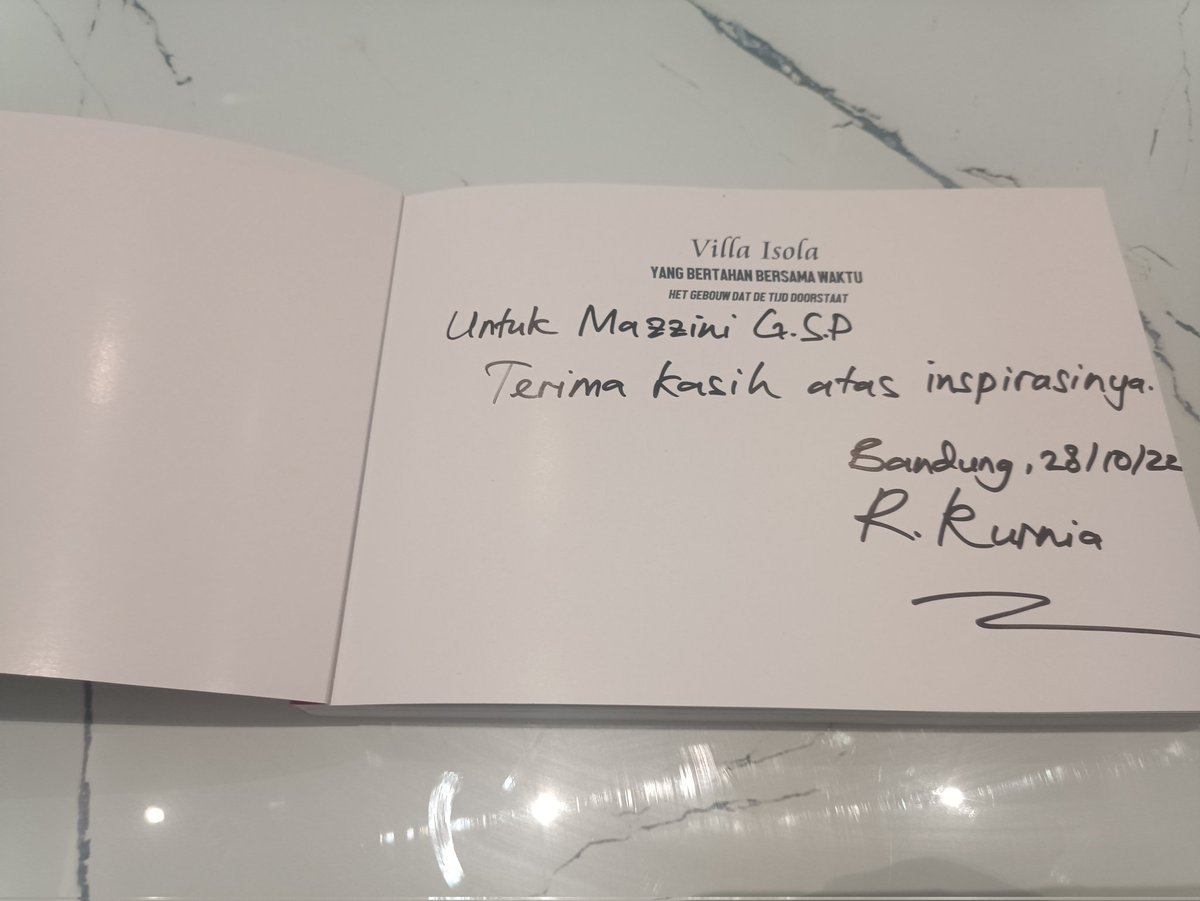 Villa Isola
YANG BERTAHAN BERSAMA WAKTU
HET GEBOUW DAT DE TIJD DOORSTAAT
Untuk Mazzini G.S.P
Terima kasih atas inspirasinya.
Bandung, 28/10/22
R. Kurnia